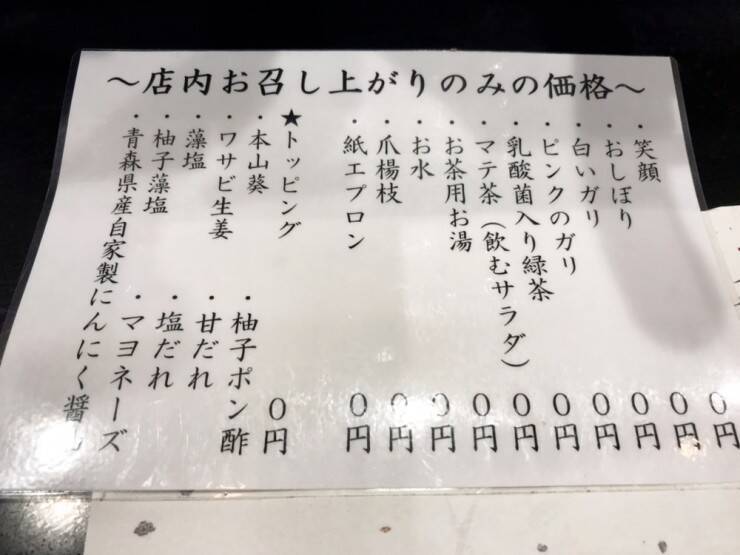 ～店内お召し上がりのみの価格～
・笑顔 0円
・おしぼり 0円
・白いガリ 0円
・ピンクのガリ 0円
・乳酸菌入り緑茶 0円
・マテ茶（飲むサラダ） 0円
・お茶用お湯 0円
・お水 0円
・爪楊枝 0円
・紙エプロン 0円
★トッピング 0円
・本山葵 ・柚子ポン酢
・ワサビ生姜 ・甘だれ
・藻塩 ・塩だれ
・柚子藻塩 ・マヨネーズ
・青森県産自家製にんにく醤